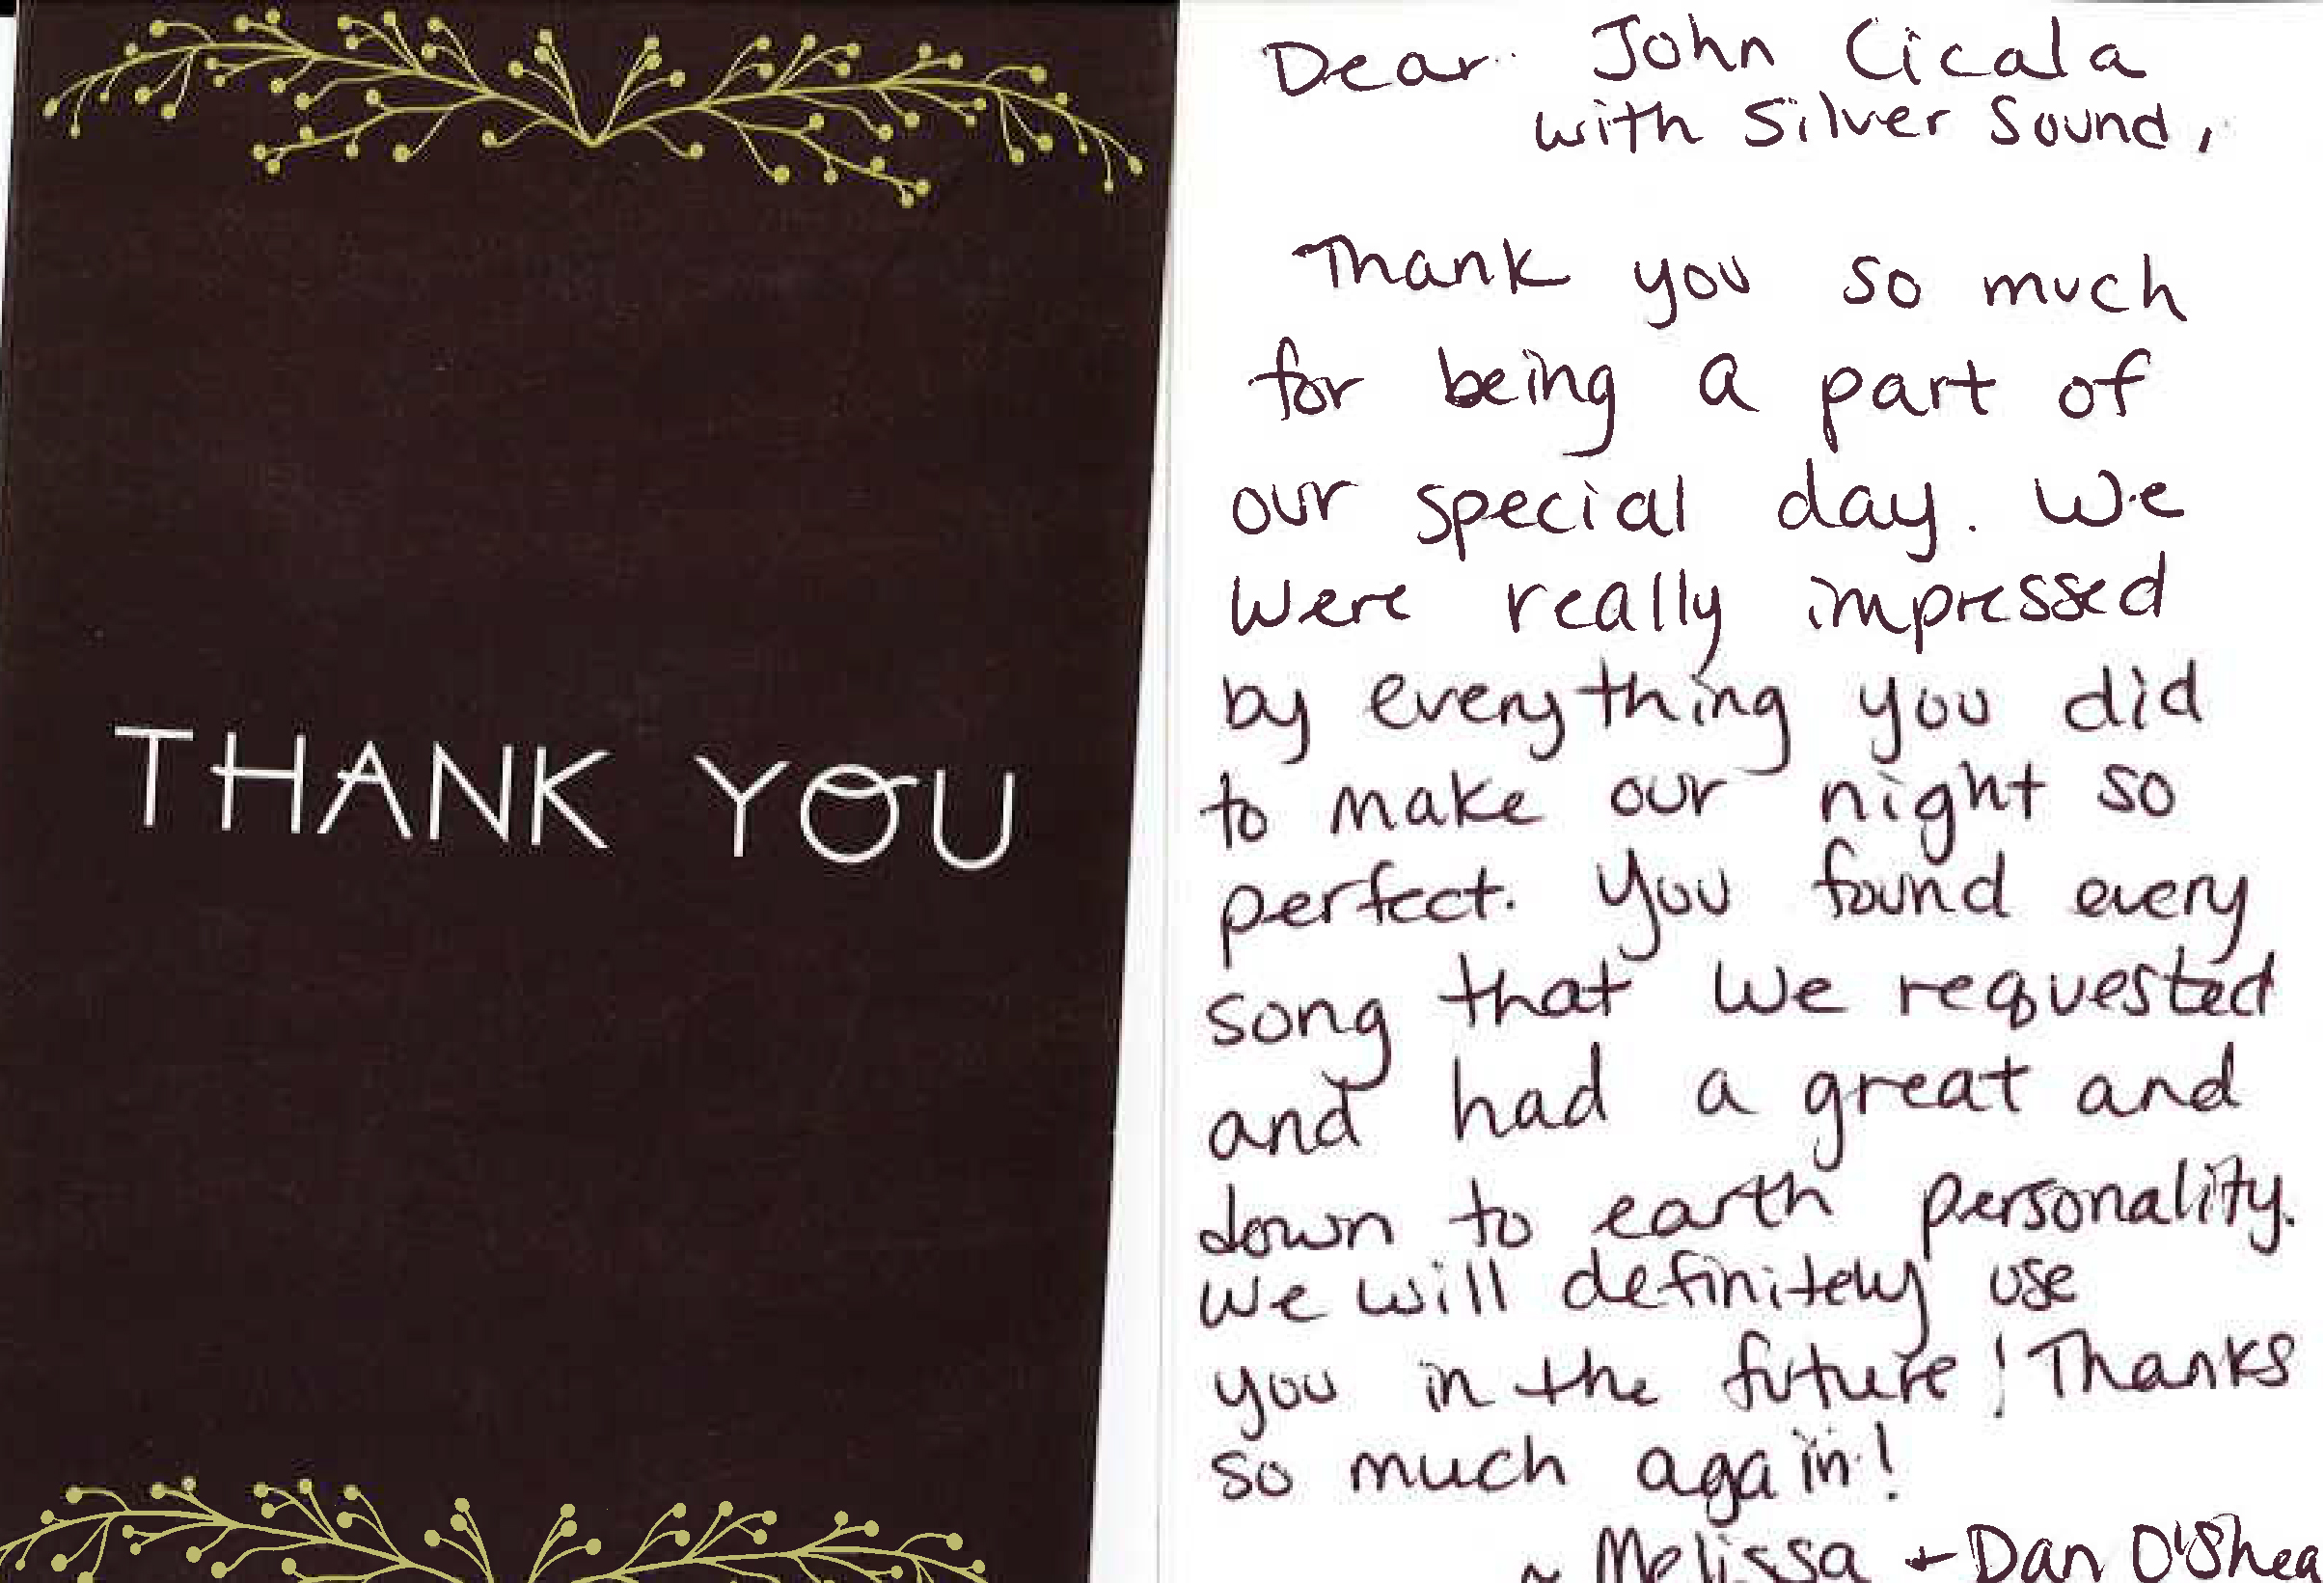 THANK YOU
Dear John Cicala
with Silver Sound,
Thank you so much
for being a part of
our special day. We
were really impressed
by everything you did
to make our night so
perfect. You found every
song that we requested
and had a great and
down to earth personality.
We will definitely use
you in the future! Thanks
so much again!
~ Melissa + Dan O'Shea